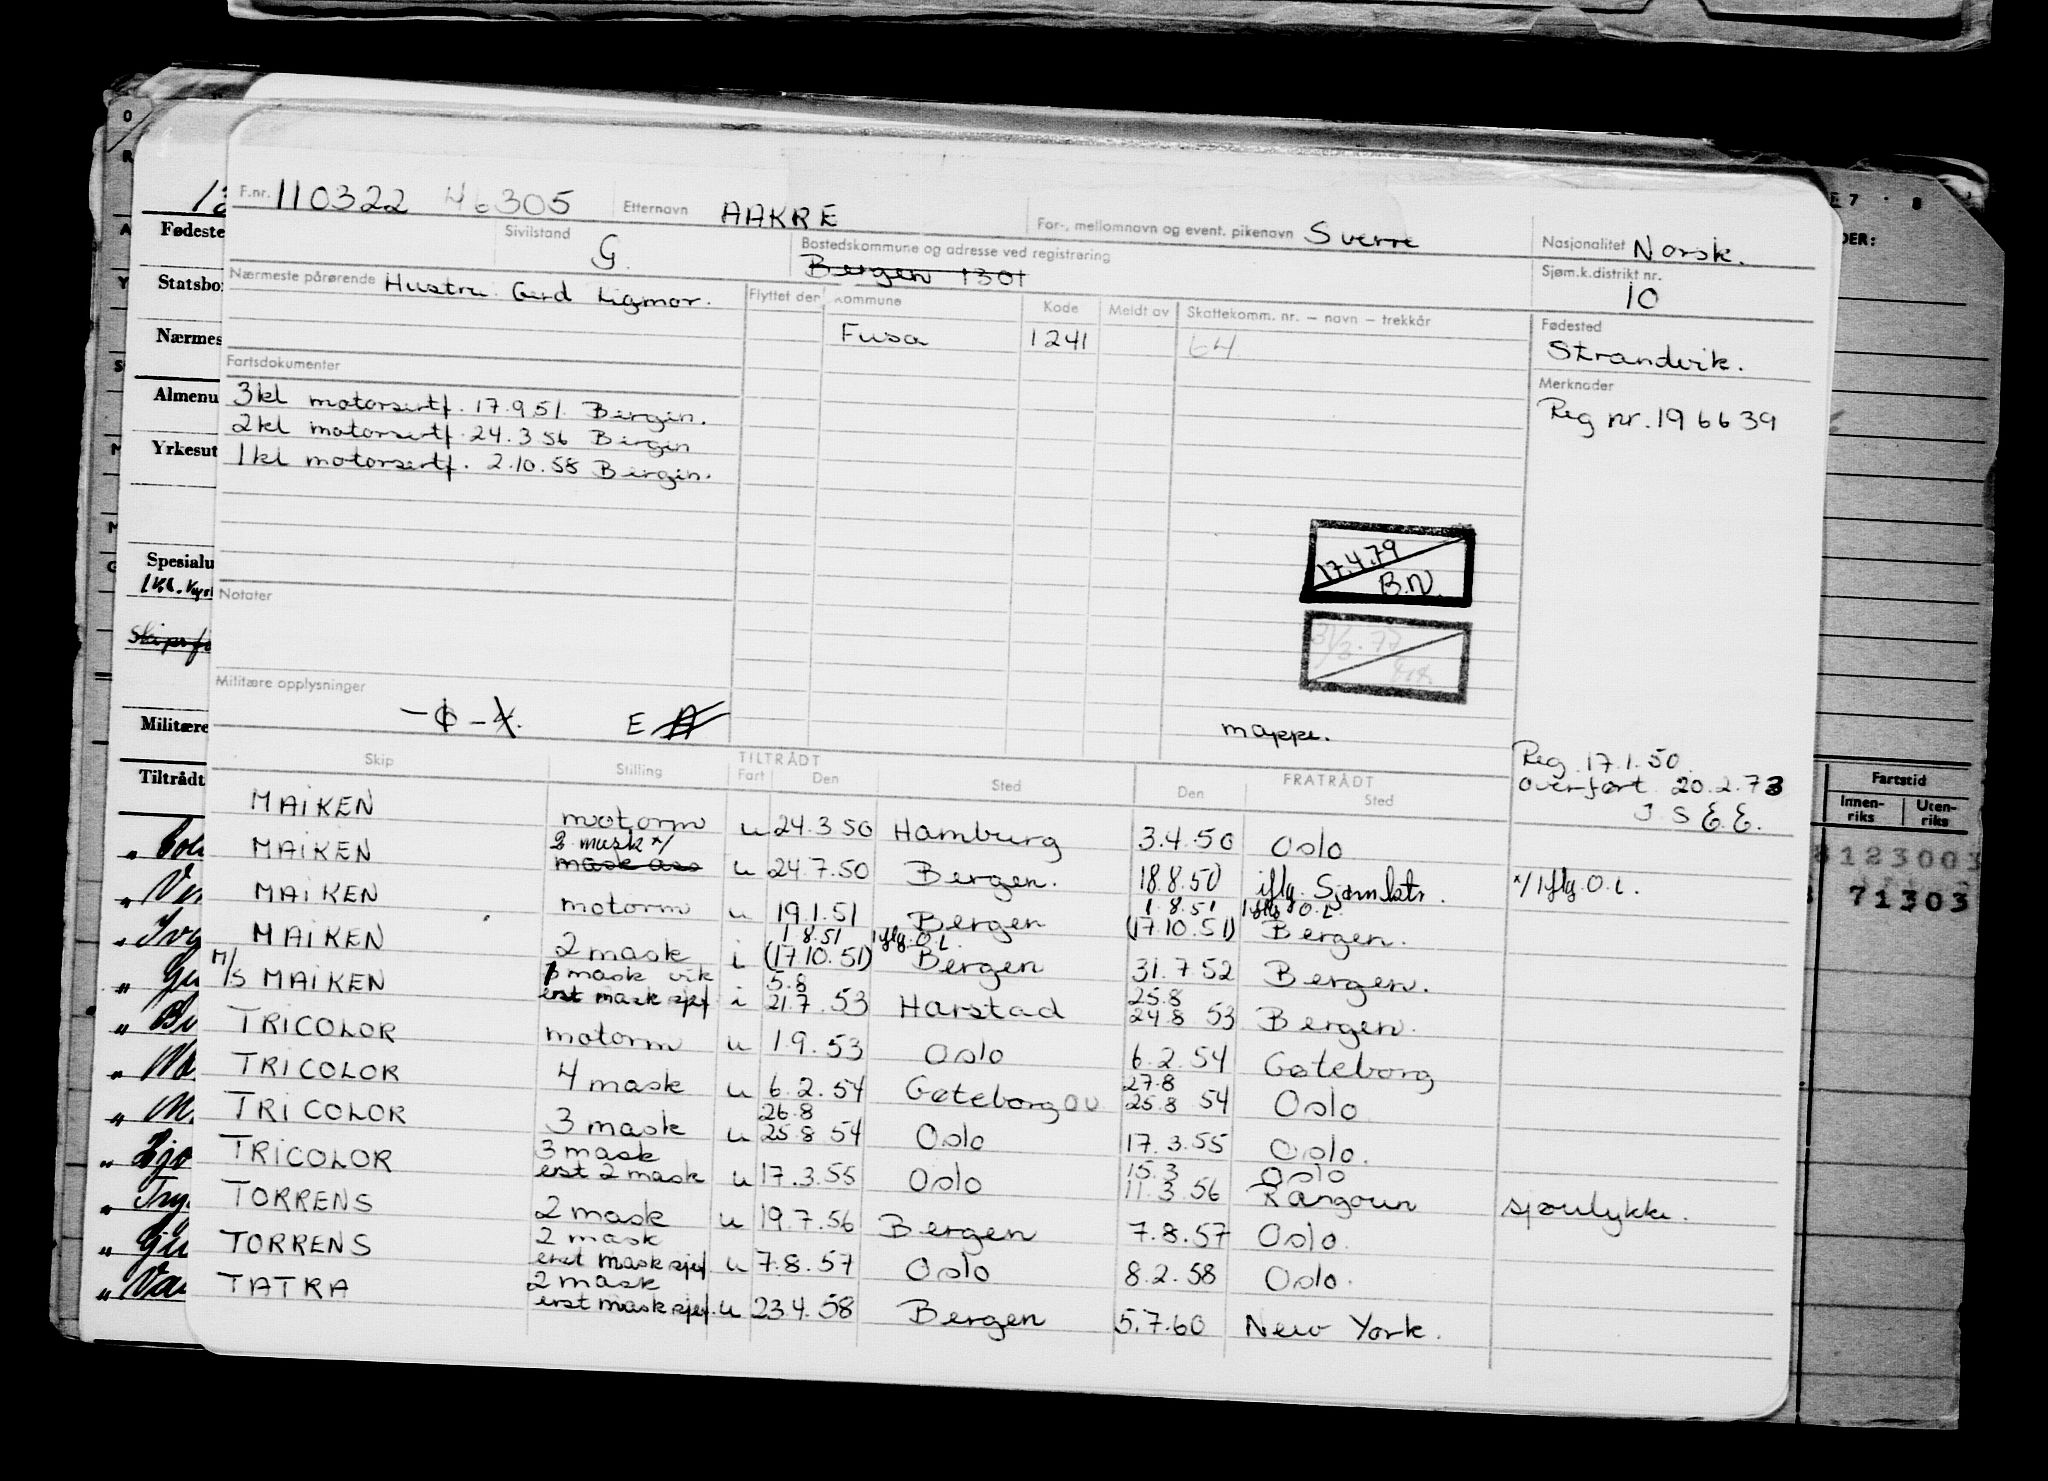 F.nr. 110322 46305 Etternavn AAKRE For-, mellomnavn og event. pikenavn Sverre Nasjonalitet Norsk.
Sivilstand G. Bostedskommune og adresse ved registrering Bergen 1301 Sjøm.k.distrikt nr. 10
Nærmeste pårørende Hustru. Gerd Ligmor.
Flyttet den Kommune Kode Meldt av Skattekomm. nr. – navn – trekkår
Fusa 1241 64
Fødested
Strandvik.
Merknader
Reg nr. 196639
Fartsdokumenter
3 kl motorsertf. 17.9.51. Bergen.
2 kl motorsertf. 24.3.56 Bergen
1 kl motorsertf. 2.10.58 Bergen.
17.4.79
B.N.
Notater
31/3.77
Militære opplysninger
E
mappe.
Reg. 17.1.50.
Overført. 20.2.73
J. S E. E.
Skip Stilling TILTRÅDT Fart Den Sted FRATRÅDT Den Sted
MAIKEN motorm u 24.3.50 Hamburg 3.4.50 Oslo
MAIKEN 2 mask x/ mask ass u 24.7.50 Bergen. 18.8.50 iflg. Sjømktr. x/ Iflg. O.L.
MAIKEN motorm u 19.1.51 Bergen 1.8.51 Iflg O.L. (17.10.51) Bergen.
MAIKEN 2 mask i 1.8.51 Iflg. O.L. (17.10.51) Bergen 31.7.52 Bergen.
M/S MAIKEN 1 mask vik erst mask sjef i 5.8 21.7.53 Harstad 25.8 24.8 53 Bergen.
TRICOLOR motorm u 1.9.53 Oslo 6.2.54 Gøteborg
TRICOLOR 4 mask u 6.2.54 Gøteborg OU 27.8 25.8 54 Oslo
TRICOLOR 3 mask u 26.8 25.8 54 Oslo 17.3.55 Oslo.
TRICOLOR 3 mask erst 2 mask u 17.3.55 Oslo 15.3 11.3.56 Oslo Rangoun sjøulykke.
TORRENS 2 mask u 19.7.56 Bergen 7.8.57 Oslo.
TORRENS 2 mask erst mask sjef u 7.8.57 Oslo 8.2.58 Oslo.
TATRA 2 mask erst mask sjef. u 23.4.58 Bergen 5.7.60 New York.
Fødeste
Statsbo
Nærmes
Almenu
Yrkesut
Spesialu
Militære
Tiltrådt
7 . 8
DER:
Fartstid
Innen-riks Uten-riks
8123003
71303